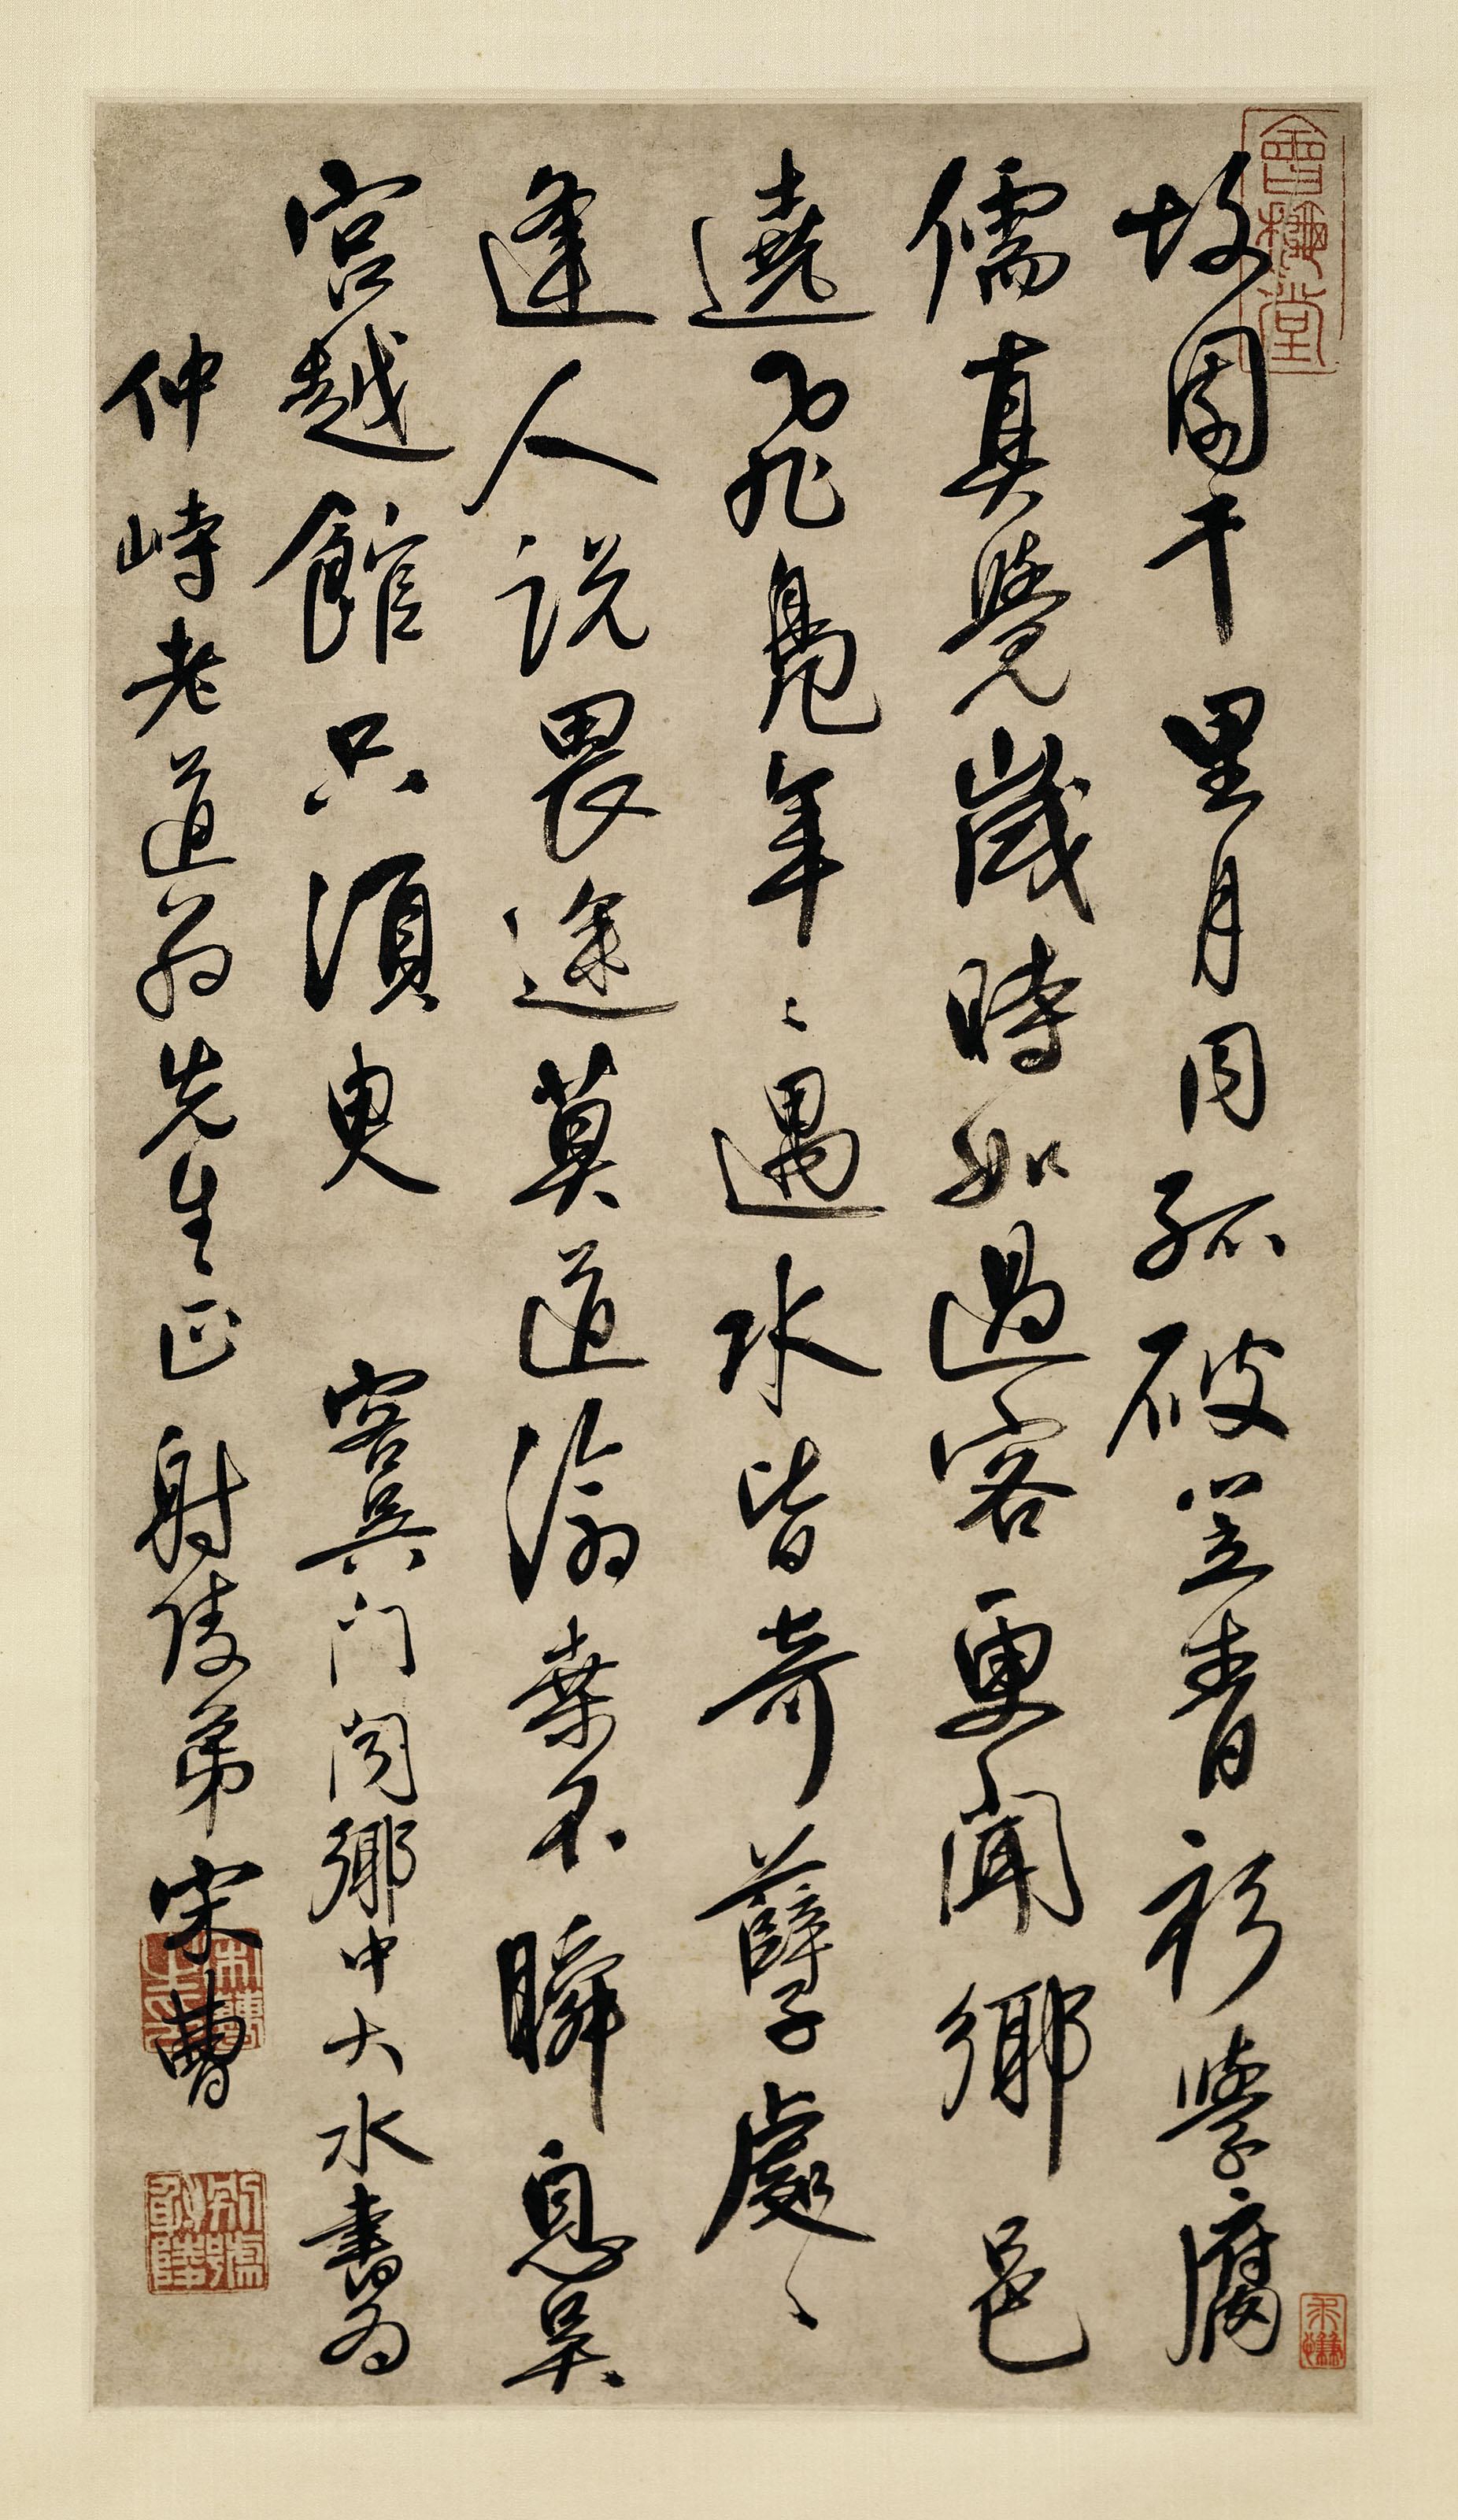 故園千里月同孤破笠青衫學腐
儒真覺歲時如過客更聞鄉邑
遶飛鳧年〻遇水皆奇孽處〻
逢人説畏途莫道滄桑不瞬息吴
宮越館只須臾 客吴门闻鄉中大水書為
仲峙老道翁先生正 射陵弟宋曹